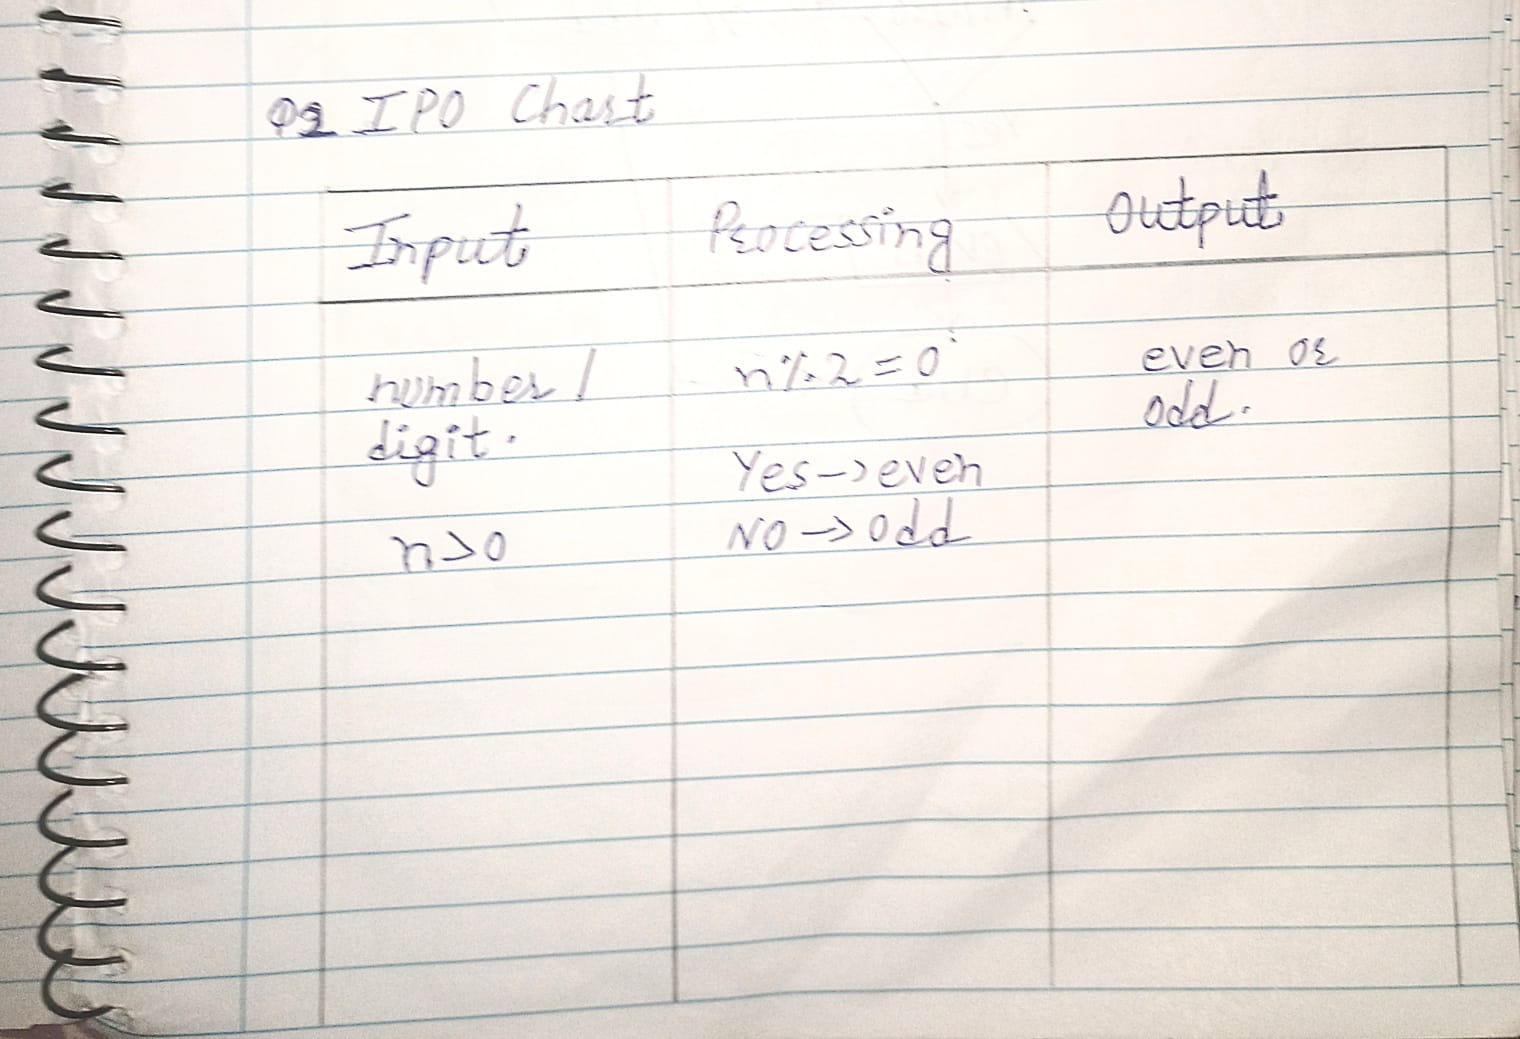 Q2 IPO Chart
Input Processing Output
number/ n%2=0 even or
digit. odd.
Yes->even
n>0 NO->odd